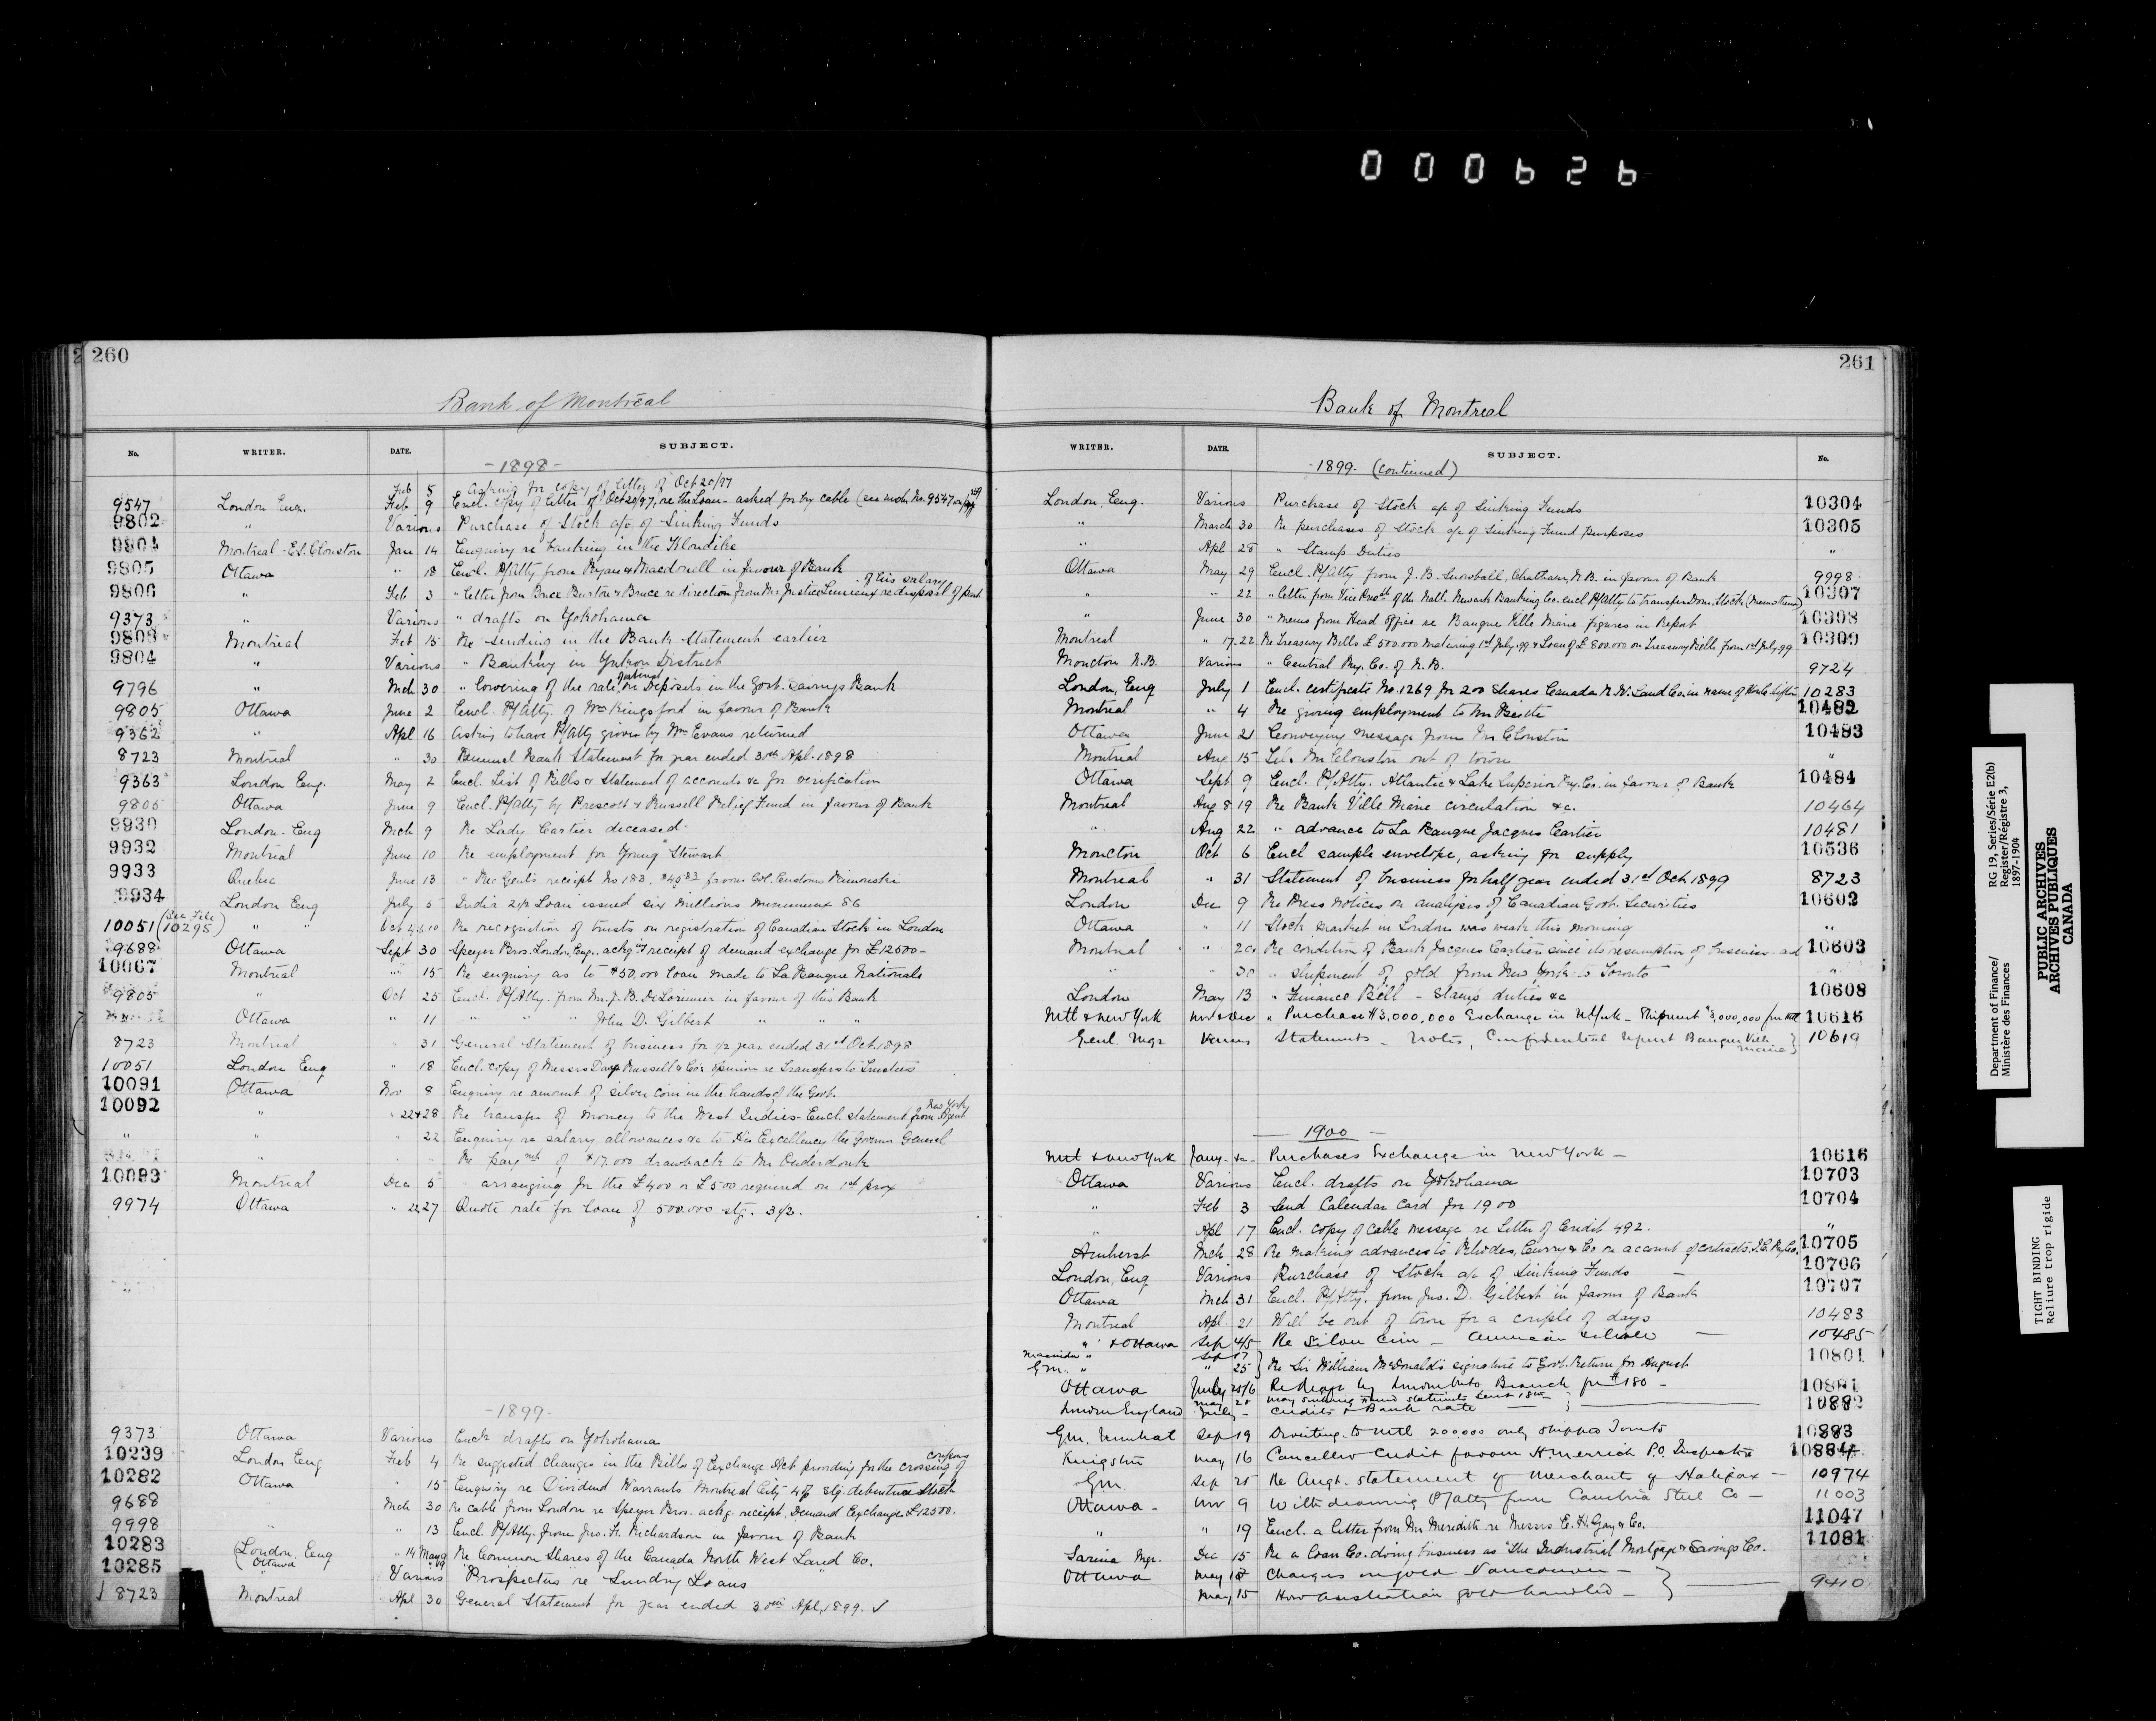 000626
260
Bank of Montreal
No. WRITER. DATE. SUBJECT.
-1898-
Feb 5 Asking for copy of letter of Oct 20/97
9547 London Eng. Feb 9 Encl. copy of letter of Oct 20/97, re the Loan - asked for by cable (see under No. 9547 on
9802 " Various Purchase of Stock a/c of Sinking Funds
9804 Montreal - E.S. Clouston Jan 14 Enquiry re banking in the Klondike
9805 Ottawa " 18 Encl. P/Atty from Ryan & Macdonell in favour of Bank
9806 " Feb 3 " Letter from Bruce Burton & Bruce re direction from Mr Justice re disposal of part of his salary
9373 " Various " drafts on Yokohama
9803 Montreal Feb 15 Re sending in the Bank Statement earlier
9804 " Various " Banking in Yukon District
9796 " Mch 30 " lowering of the rate interest on Deposits in the Govt. Savings Bank
9805 Ottawa June 2 Encl. P/Atty. of Wm Kingsford in favour of Bank
9362 " Apl 16 Asking to have P/Atty given by Mrs Evans returned
8723 Montreal " 30 Bank Statement for year ended 30th Apl. 1898
9363 London Eng. May 2 Encl. List of Bills & Statement of accounts &c for verification
9805 Ottawa June 9 Encl. P/Atty by Prescott & Russell Relief Fund in favour of Bank
9930 London Eng Mch 9 Re Lady Cartier deceased
9932 Montreal June 10 Re employment for Young Stewart
9933 Quebec June 13 " Rec Genl's receipt No 183, favour Col. Customs Rimouski
9934 London Eng July 5 India 2½% Loan issued six millions 86
10051 (See File 10295) " " Oct 4,6,10 Re recognition of trusts on registration of Canadian Stock in London
9688 Ottawa Sept 30 Speyer Bros. London, Eng., ackg receipt of demand exchange for £12500-
10067 Montreal " 15 Re enquiry as to $50,000 loan made to La Banque Nationale
9805 " Oct 25 Encl. P/Atty. from Mr. J. B. DeLorimier in favour of this Bank
Ottawa " 11 " " " John D. Gilbert " " "
8723 Montreal " 31 General Statement of business for ½ year ended 31st Oct. 1898
10051 London Eng " 18 Encl. copy of Messrs Russell & Co's opinion re Transfers to Trustees
10091 Ottawa Nov 8 Enquiry re amount of silver coin in the hands of the Govt.
10092 " " 22&28 Re transfer of money to the West Indies - Encl. statement from New York Agent
" " " 22 Enquiry re salary allowances &c to His Excellency the Govnor General
" " Re paymt of $17.000 drawback to Mr Onderdonk
10093 Montreal Dec 5 " arranging for the £400 or £500 required on 1st prox
9974 Ottawa " 22,27 Quote rate for loan of 500.000 stg. 3½.
-1899-
9373 Ottawa Various Encl. drafts on Yokohama
10239 London Eng Feb 4 Re suggested changes in the Bills of Exchange Act providing for the crossing of coupons
10282 Ottawa " 15 Enquiry re Dividend Warrants Montreal City 4% stg. debenture Stock
9688 Mch 30 Re cable from London re Speyer Bros. ackg. receipt, Demand Exchange £12500.
9998 " " 13 Encl. P/Atty. from Jno. H. Richardson in favour of Bank
10283 (London, Eng Ottawa " 14 May 9 Re Common Shares of the Canada North West Land Co.
10285 " Various Prospectus re Sundry Loans
8723 Montreal Apl 30 General Statement for year ended 30th Apl. 1899.
261
Bank of Montreal
WRITER. DATE. SUBJECT. No.
-1899- (continued)
London, Eng. Various Purchase of Stock a/c of Sinking Funds 10304
" March 30 Re purchases of Stock a/c of Sinking Fund purposes 10305
" Apl 28 " Stamp Duties "
Ottawa May 29 Encl. P/Atty from J. B. Snowball, Chatham, N.B. in favour of Bank 9998
" " 22 " letter from Vice Pres of the Natl. Newark Banking Co. encl P/Atty to transfer Dom. Stock 10307
" June 30 " memo from Head Office re Banque Ville Marie figures in Report 10308
Montreal " 17.22 Re Treasury Bills £500.000 maturing 1st July, 99 & Loan of £800.000 on Treasury Bills from 1st July, 99 10309
Moncton N.B. Various " Central Ry. Co. of N.B. 9724
London, Eng July 1 Encl. certificate No. 1269 for 200 shares Canada N.W. Land Co. in name of 10283
Montreal " 4 Re giving employment to Mr 10482
Ottawa June 21 Conveying message from Mr Clouston 10483
Montreal Aug 15 Mr Clouston out of town "
Ottawa Sept 9 Encl. P/Atty. Atlantic & Lake Superior Ry. Co. in favour of Bank 10484
Montreal Aug 8 19 Re Bank Ville Marie circulation &c. 10464
" Aug 22 " advance to La Banque Jacques Cartier 10481
Moncton Oct 6 Encl sample envelope, asking for supply 10536
Montreal " 31 Statement of business for half year ended 31st Oct 1899 8723
London Dec 9 Re Press Notices on analysis of Canadian Govt. Securities 10602
Ottawa " 11 Stock market in London was weak this morning "
Montreal " 20 Re condition of Bank Jacques Cartier since its resumption of business 10603
" " 30 " shipment of gold from New York to Toronto "
London May 13 " Finance Bill - Stamp duties &c 10608
Mtl & New York Nov & Dec " Purchase $3,000,000 Exchange in N York - Shipment $3,000,000 10616
Genl. Mgr Various Statements - Notes, Confidential report Banque Ville Marie 10619
1900
Mtl & New York Jany. &c- Purchases Exchange in New York - 10616
Ottawa Various Encl. drafts on Yokohama 10703
" Feb 3 Send Calendar Card for 1900 10704
" Apl 17 Encl. copy of cable message re Letter of Credit 492. "
Amherst Mch 28 Re making advances to Rhodes, Curry & Co on account of contracts I.C. Ry. 10705
London, Eng Various Purchase of Stock a/c of Sinking Funds 10706
Ottawa Mch 31 Encl. P/Atty. from Jno. D. Gilbert in favour of Bank 10707
Montreal Apl. 21 Will be out of town for a couple of days 10483
" & Ottawa Sep 4/5 Re Silver Coin - American silver 10485
" Sep 17
G.M. " " 25 } Re Sir William McDonald's signature to Govt. Return for August 10801
Ottawa July Branch for $180 - 10881
London England July - Credits & Bank rate 10882
May 28 May Sinking Fund statements sent
G.M. Montreal Sep 19 Diverting to Mtl 200.000 only shipped Toronto 10883
Kingston May 16 Cancelled Credit favour H. Merrick P.O. Inspector 10884
G.M. Sep 25 Re Augt. statement of Merchants of Halifax - 10974
Ottawa - Nov 9 Withdrawing P/Atty from Cambria Steel Co - 11003
" " 19 Encl. a letter from Mr Meredith re Messrs E. H. Gay & Co. 11047
Sarnia Mgr. Dec 15 Re a Loan Co. doing business as "The Industrial Mortgage & Savings Co. 11081
Ottawa May 12 Charges on gold Vancouver -
May 15 How Australian gold handled - } 9410
Department of Finance/
Ministère des Finances
RG 19, Series/Série E2(b)
Register/Régistre 3,
1897-1904
PUBLIC ARCHIVES
ARCHIVES PUBLIQUES
CANADA
TIGHT BINDING
Reliure trop rigide